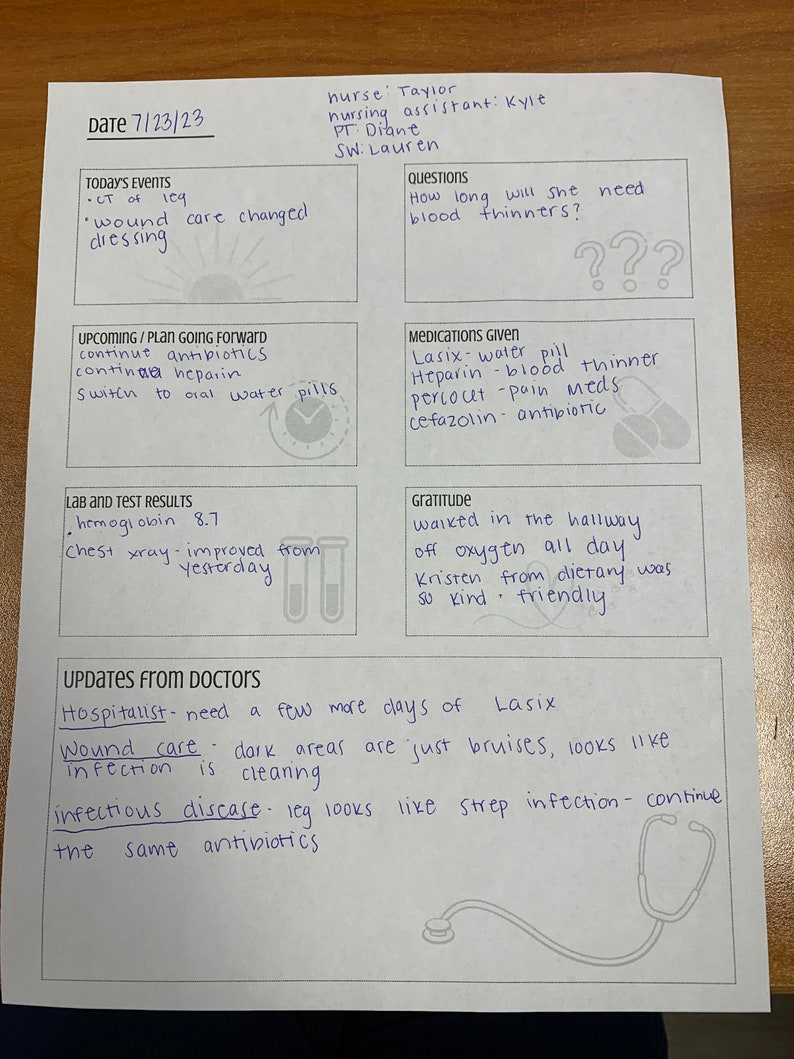 Date 7/23/23
nurse: Taylor
nursing assistant: Kyle
PT: Diane
SW: Lauren
Today's Events
• CT of leg
• wound care changed
dressing
Questions
How long will she need
blood thinners?
Upcoming / Plan Going Forward
continue antibiotics
continue heparin
switch to oral water pills
Medications Given
Lasix - water pill
Heparin - blood thinner
percocet - pain meds
cefazolin - antibiotic
Lab and Test Results
• hemoglobin 8.7
• chest xray - improved from
yesterday
Gratitude
walked in the hallway
off oxygen all day
Kristen from dietary was
so kind + friendly
Updates from Doctors
Hospitalist - need a few more days of Lasix
Wound care - dark areas are just bruises, looks like
infection is clearing
infectious disease - leg looks like strep infection - continue
the same antibiotics